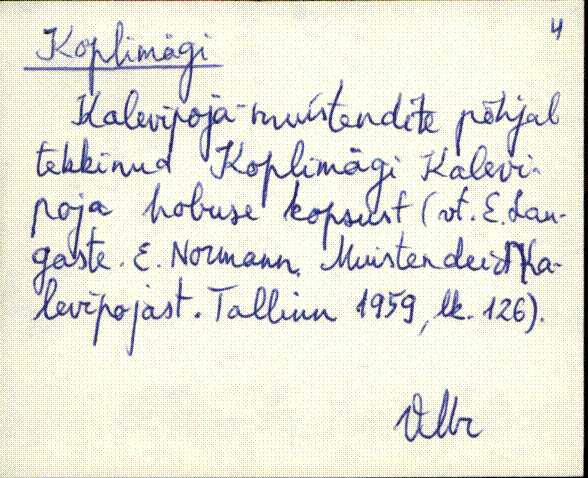 4
Koplimägi
Kalevipoja-muistendite põhjal
tekkinud Koplimägi Kalevi-
poja hobuse kopsust (vt. E. Lau-
gaste. E. Normann. Muistendeid Ka-
levipojast. Tallinn 1959, lk. 126).